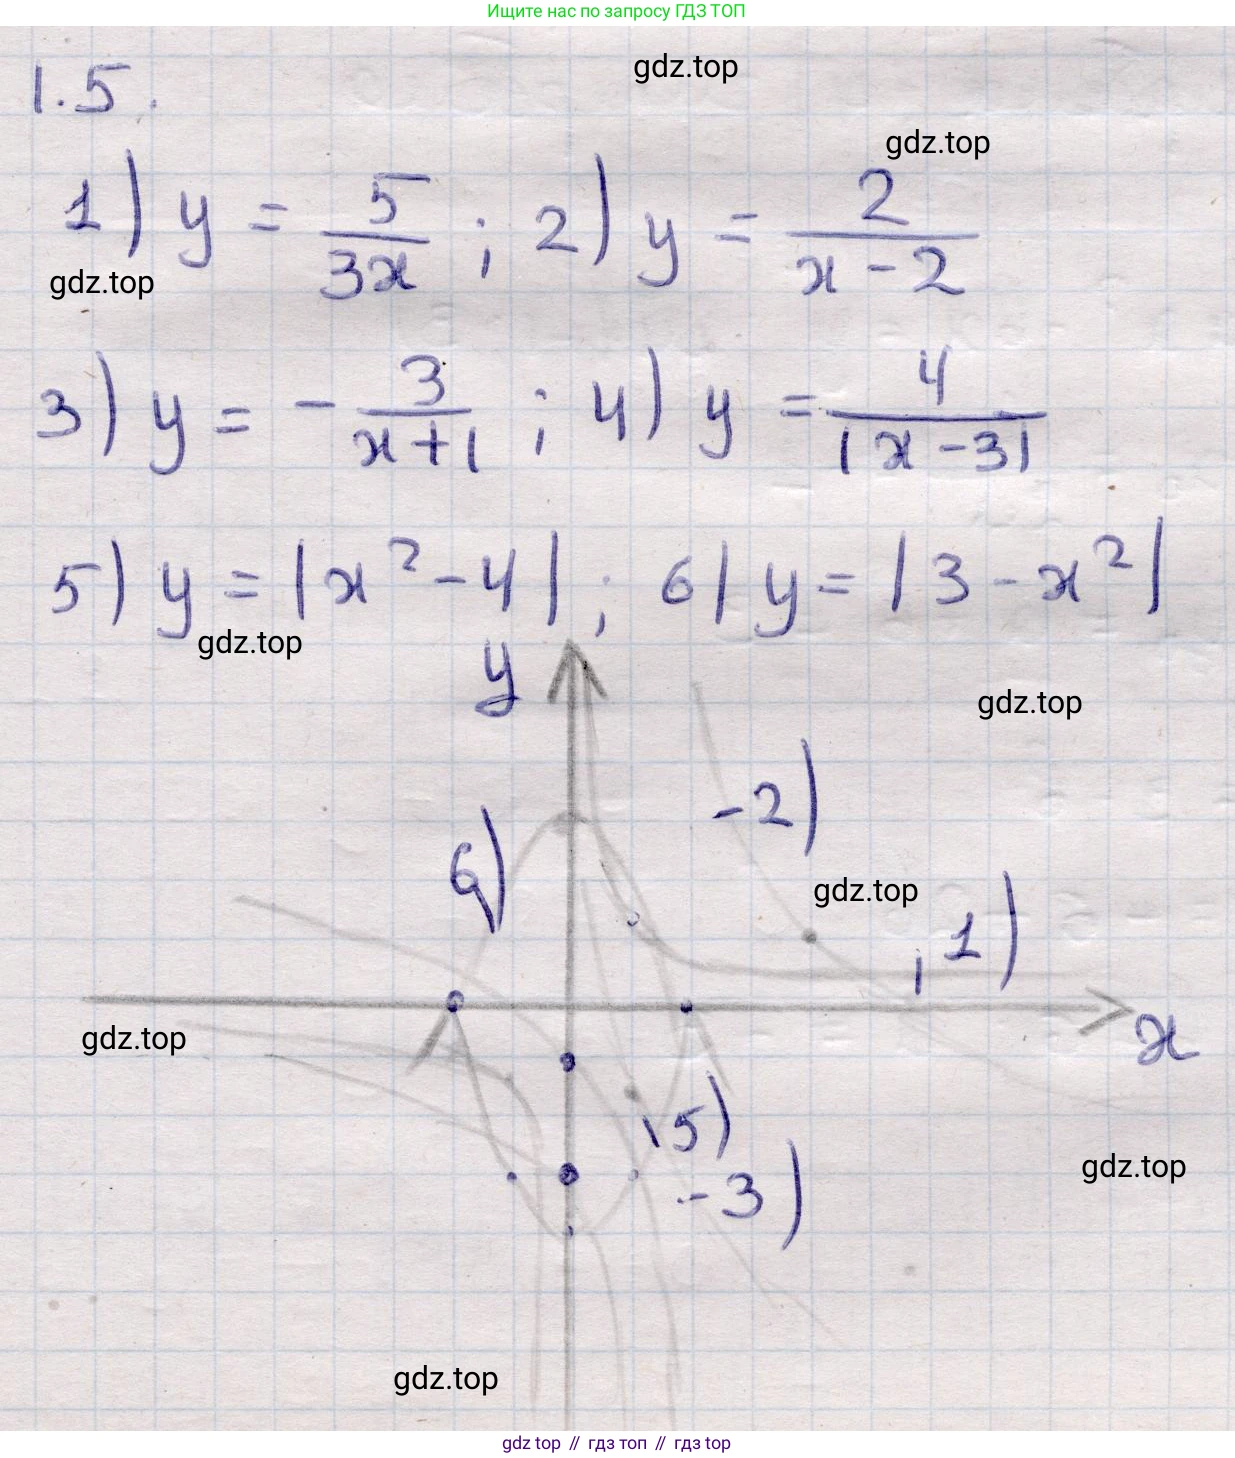 Ищите нас по запросу ГДЗ ТОП
gdz.top
1.5.
gdz.top
1) y = 5/3x ; 2) y = 2/x-2
gdz.top
3) y = - 3/x+1 ; 4) y = 4/|x-3|
5) y = |x²-4| ; 6) y = |3-x²|
gdz.top
y
gdz.top
-2)
6)
gdz.top
1)
gdz.top
x
5)
gdz.top
-3)
gdz.top
gdz top // гдз топ // гдз top